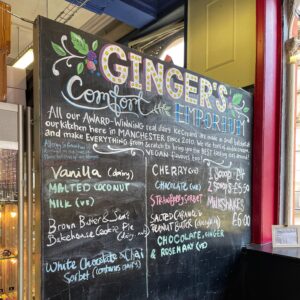 GINGER'S
Comfort
EMPORIUM
All our AWARD-WINNING real dairy ice creams are made in small batches at
our kitchen here in MANCHESTER since 2010. We use
and make EVERYTHING from scratch to bring you the BEST
VEGAN flavours too!
Vanilla (dairy)
MALTED COCONUT
MILK (ve)
Brown Butter & Sea
Bakehouse Cookie Pie
White Chocolate & Chai
Sorbet (contains dairy)
CHERRY (ve)
CHOCOLATE (ve)
Strawberry Sorbet
SALTED CARAMEL &
PEANUT BUTTER
CHOCOLATE, GINGER
& ROSEMARY (ve)
1 Scoop
2 Scoops £5.50
MILKSHAKES
£6.00